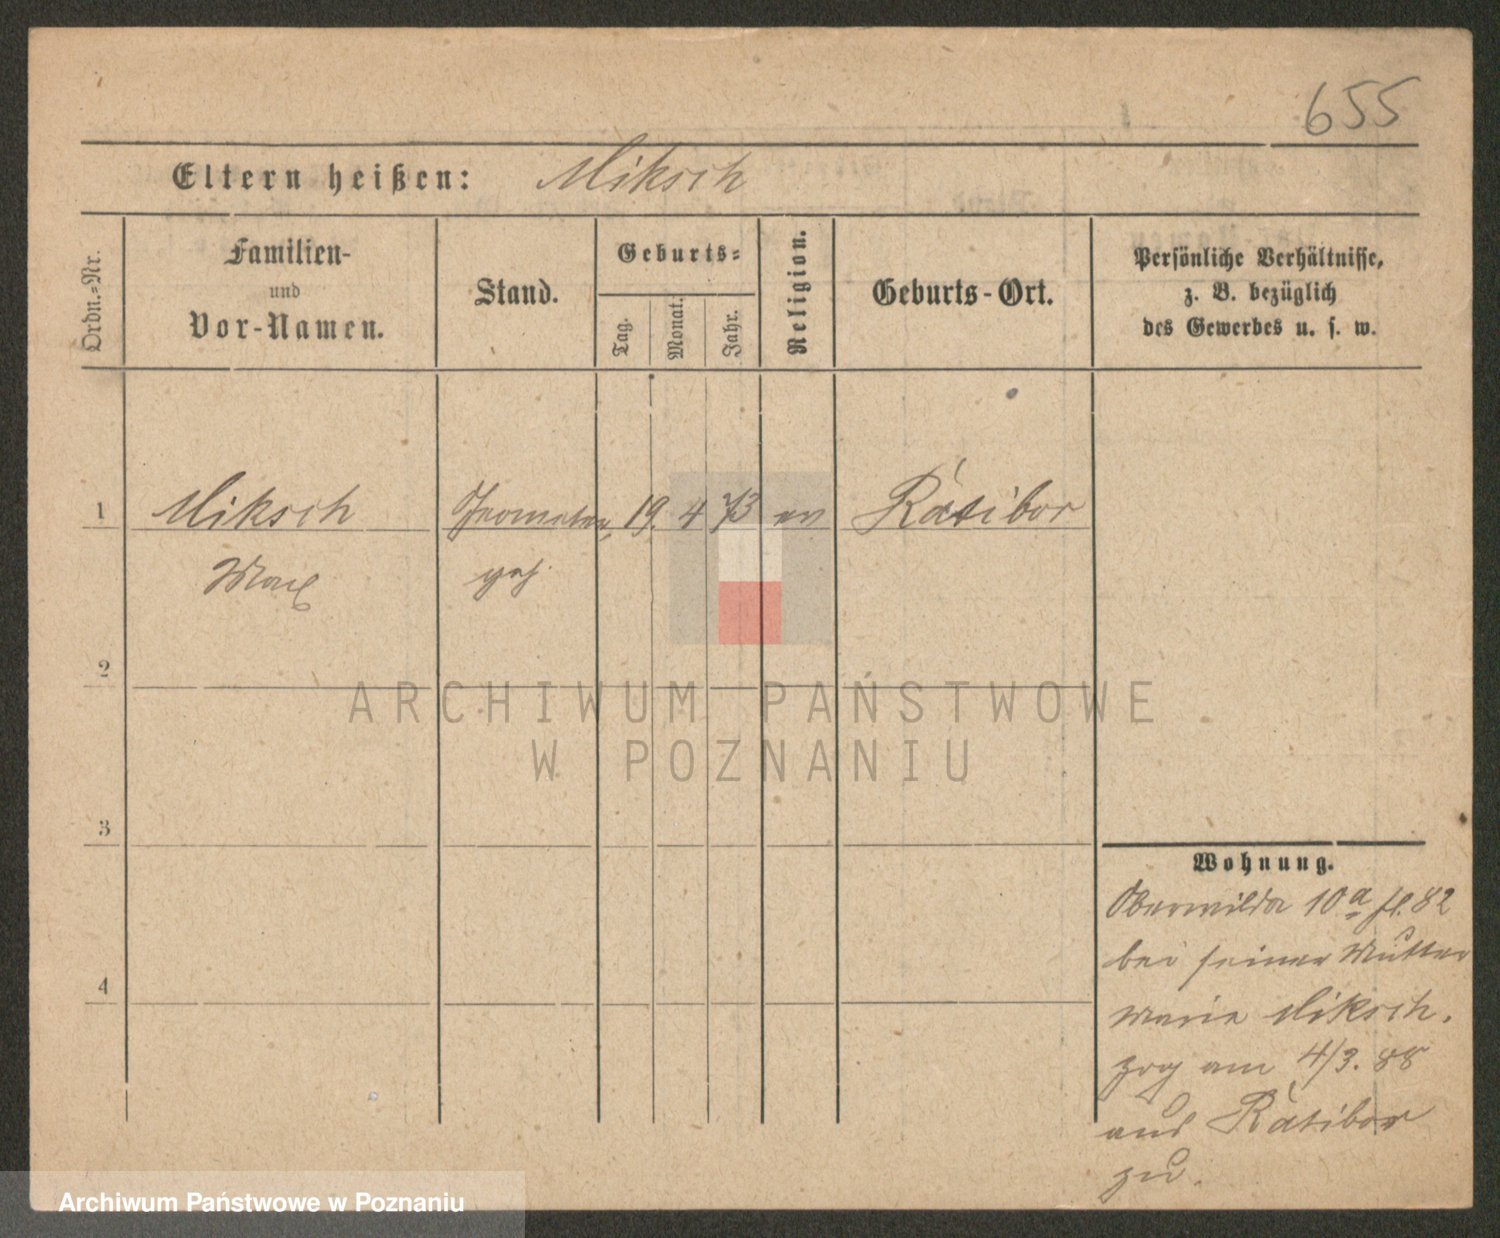 655
Eltern heißen: Miksch
Ordn.=Nr.
Familien-
und
Vor-Namen.
Stand.
Geburts=
Tag.
Monat.
Jahr.
Religion.
Geburts-Ort.
Persönliche Verhältnisse,
z. B. bezüglich
des Gewerbes u. s. w.
1 Miksch Geometer 19. 4 73 ev Ratibor
Max
2
3
4
Wohnung.
Oberwilda 10a 82
bei seiner Mutter
Marie Miksch.
zog am 4/3. 88
aus Ratibor
zu.
ARCHIWUM PAŃSTWOWE
W POZNANIU
Archiwum Państwowe w Poznaniu